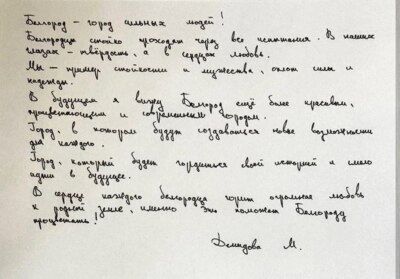 Белгород – город сильных людей!
Белгородцы стойко проходят через все испытания. В наших
глазах – твёрдость, а в сердцах любовь.
Мы – пример стойкости и мужества, оплот силы и
надежды.
В будущем я вижу Белгород ещё более красивым,
процветающим и современным городом.
Город, в котором будут создаваться новые возможности
для каждого.
Город, который будет гордиться своей историей и смело
идти в будущее.
В сердце каждого белгородца горит огромная любовь
к родной земле, именно это поможет Белгороду
процветать!
Демидова М.